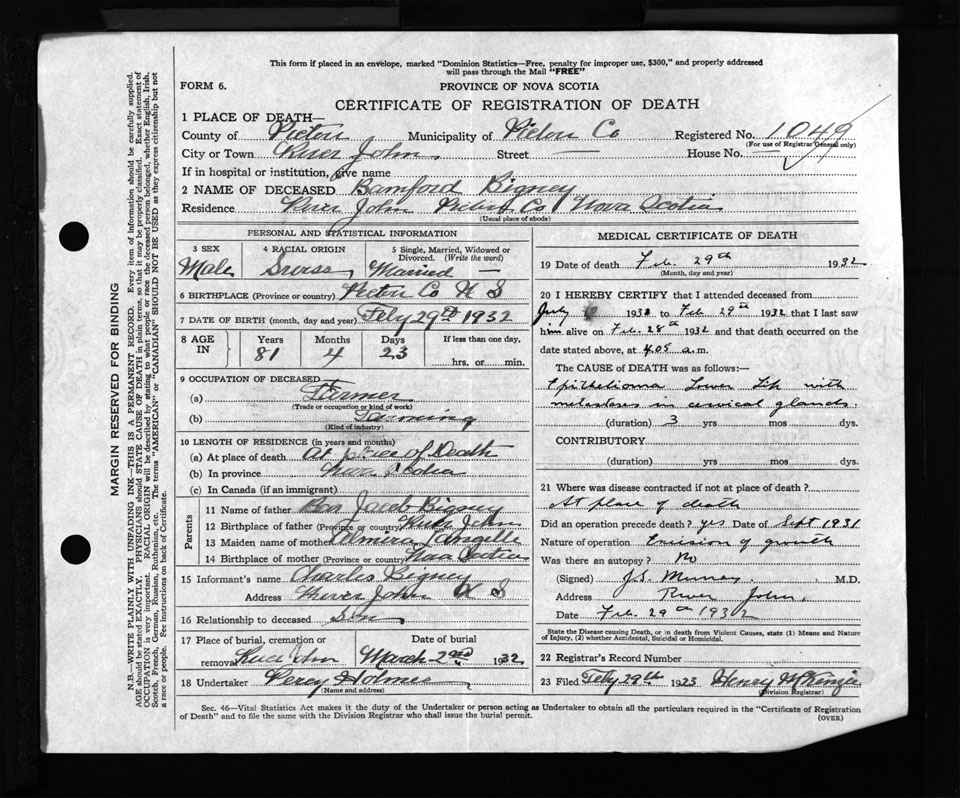 This form if placed in an envelope, marked "Dominion Statistics—Free, penalty for improper use, $300," and properly addressed
will pass through the Mail "FREE"
FORM 6.
PROVINCE OF NOVA SCOTIA
CERTIFICATE OF REGISTRATION OF DEATH
1 PLACE OF DEATH—
County of Pictou Municipality of Pictou Co Registered No. 1049
(For use of Registrar General only)
City or Town River John Street — House No. —
If in hospital or institution, give name
2 NAME OF DECEASED Bamford Bigney
Residence River John Pictou Co Nova Scotia
(Usual place of abode)
PERSONAL AND STATISTICAL INFORMATION
3 SEX 4 RACIAL ORIGIN 5 Single, Married, Widowed or
Divorced. (Write the word)
Male Swiss Married —
6 BIRTHPLACE (Province or country) Pictou Co N S
7 DATE OF BIRTH (month, day and year) Feby 29th 1932
8 AGE IN Years Months Days If less than one day,
81 4 23 hrs. or min.
9 OCCUPATION OF DECEASED
(a) Farmer
(Trade or occupation or kind of work)
(b) Farming
(Kind of industry)
10 LENGTH OF RESIDENCE (in years and months)
(a) At place of death At place of Death
(b) In province Nova Scotia
(c) In Canada (if an immigrant)
Parents
11 Name of father Jacob Bigney
12 Birthplace of father (Province or country) River John
13 Maiden name of mother Almira Langille
14 Birthplace of mother (Province or country) Nova Scotia
15 Informant's name Charles Bigney
Address River John N S
16 Relationship to deceased Son
17 Place of burial, cremation or Date of burial
removal River John March 2nd 1932
18 Undertaker Percy Holmes
(Name and address)
MEDICAL CERTIFICATE OF DEATH
19 Date of death Feb. 29th 1932
(Month, day and year)
20 I HEREBY CERTIFY that I attended deceased from
July 193 to Feb 29th 1932 that I last saw
him alive on Feb. 28th 1932 and that death occurred on
the date stated above, at 4.05 a.m.
The CAUSE of DEATH was as follows:—
Epithelioma Lower Lip with
metastases in cervical glands.
(duration) 3 yrs mos dys.
CONTRIBUTORY
(duration) yrs. mos. dys.
21 Where was disease contracted if not at place of death?
At place of death
Did an operation precede death? yes Date of Sept 1931
Nature of operation Excision of growth
Was there an autopsy? No
(Signed) J.S. Murray M.D.
Address River John,
Date Feb. 29th 1932
State the Disease causing Death, or in death from Violent Causes, state (1) Means and Nature
of Injury, (2) whether Accidental, Suicidal or Homicidal.
22 Registrar's Record Number
23 Filed Feby 29th 1923 Henry McKenzie
(Division Registrar)
Sec. 46—Vital Statistics Act makes it the duty of the Undertaker or person acting as Undertaker to obtain all the particulars required in the "Certificate of Registration
of Death" and to file the same with the Division Registrar who shall issue the burial permit.
(OVER)
MARGIN RESERVED FOR BINDING
N.B.—WRITE PLAINLY WITH UNFADING INK—THIS IS A PERMANENT RECORD. Every item of information should be carefully supplied.
AGE should be stated EXACTLY. PHYSICIANS should STATE CAUSE OF DEATH in plain terms, so that it may be properly classified. Exact statement of
OCCUPATION is very important. RACIAL ORIGIN will be described by stating to what people or race the deceased person belonged, whether English, Irish,
Scotch, French, German, Russian, Ruthenian, etc. The terms "AMERICAN" or "CANADIAN" SHOULD NOT BE USED as they express citizenship but not
a race or people. See instructions on back of Certificate.